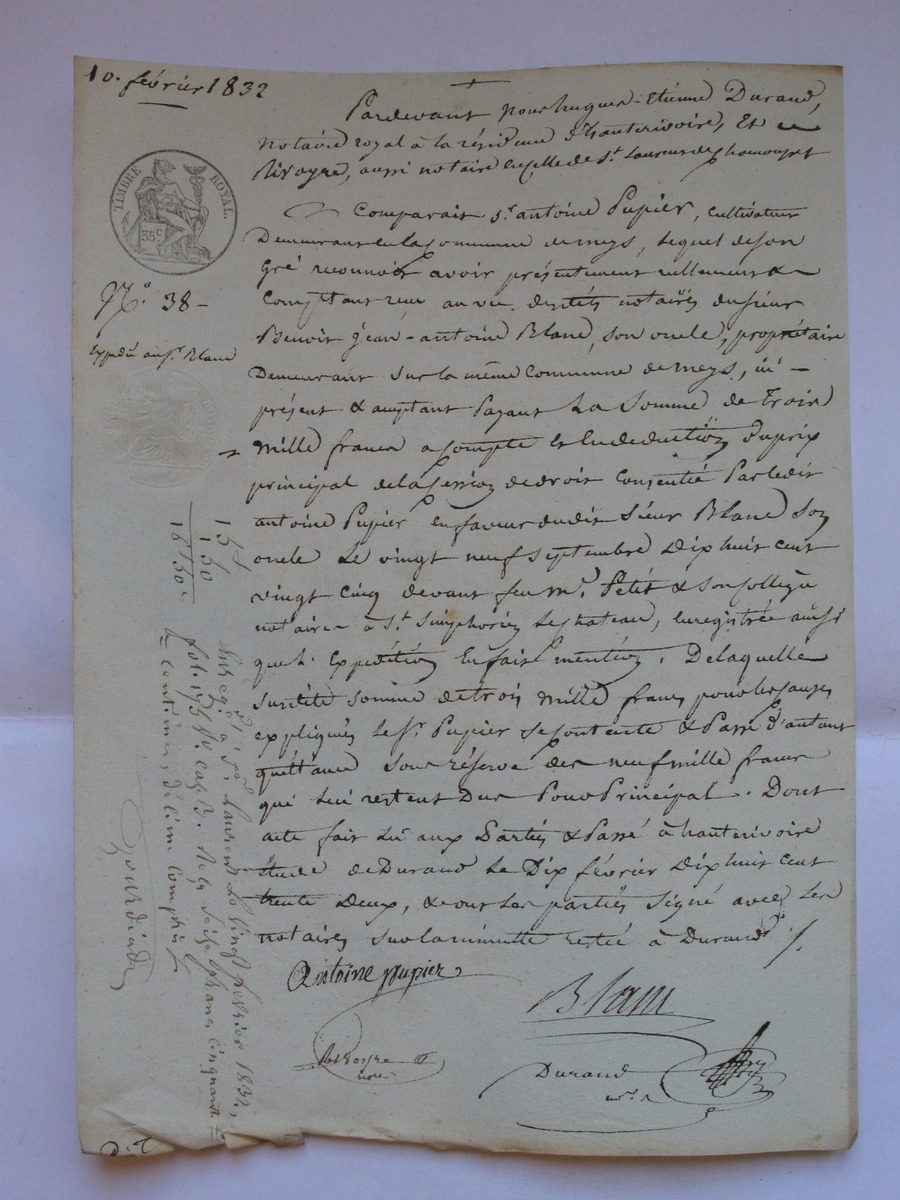 10. février 1832
Pardevant nous hugues-Etienne Durand,
notaire royal à la résidence d'hauterivoire, Et
Rivoyre, aussi notaire en celle de St. Laurent de Chamousset
Comparait Sr. antoine Pupier, cultivateur
Demeurant en la commune de meys, lequel de son
gré reconnoit avoir présentement réellement &
Comptant reçu au vu desdits notaires du sieur
Benoit jean-antoine Blanc, son oncle, propriétaire
Demeurant sur la même commune de meys, ici
présent & acceptant payant La Somme de Trois
mille francs a compte et En déduction Du prix
principal de la Cession de droit Consentie Par ledit
antoine Pupier en faveur dudit Sieur Blanc Son
oncle Le vingt neuf septembre Dix huit cent
vingt Cinq devant feu me. Petit & son Collègue
notaires à St. Simphorien Le chateau, Enregistrée ainsi
que l' Expédition En fait mention. De laquelle
susdite somme de trois mille francs pour les causes
expliquées Le Sr. Pupier se contente & Passe d'autant
quittance sous réserve des neuf mille francs
qui lui restent Dus Pour Principal. Dont
acte fait Lu aux Parties & Passé à hauterivoire
étude de Durand Le Dix février Dix huit cent
trente Deux, & ont Les parties Signé avec Les
notaires sur la minute restée à Durand
Antoine pupier
Blanc
Rivoyre
nre
Durand
nre
TIMBRE ROYAL.
35 c.
No. 38
Expédié au Sr. Blanc
15
1 50
16 50 c
Enreg. à St. Laurent Le vingt fevrier 1832,
fol. 175 Vo. Cas 3. Reçu seize francs cinquante
centimes, décime compris